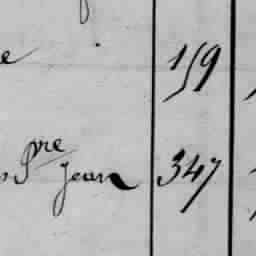 e 159
s Pre Jean 347